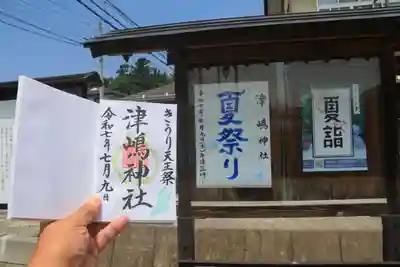 きうり天王祭
津嶋神社
令和七年七月九日
津嶋神社
夏祭り
夏詣